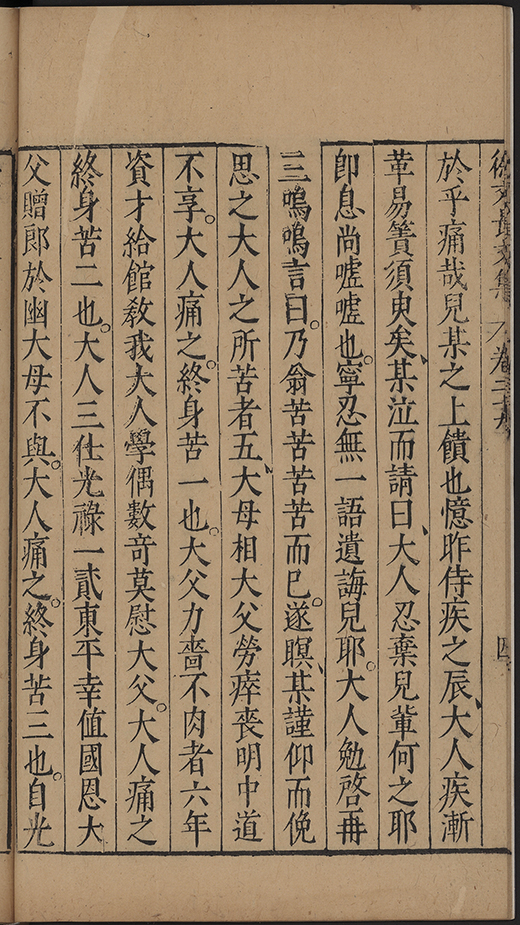 徐文長文集 卷三十 四
於乎痛哉兒某之上饋也憶昨侍疾之辰、大人疾漸
革易簀須臾矣、某泣而請曰、大人忍棄兒輩何之耶
卽息尚噓噓也。寧忍無一語遺誨兒耶。大人勉啓再
三嗚嗚言曰。乃翁苦苦苦苦而已。遂瞑、某謹仰而俛
思之大人之所苦者五、大母相大父勞瘁喪明中道
不享。大人痛之。終身苦一也。大父力嗇不肉者六年
資才給館教我大人學偶數奇莫慰大父。大人痛之
終身苦二也。大人三仕光祿一貳東平幸值國恩大
父贈郎於幽大母不與。大人痛之。終身苦三也。自光